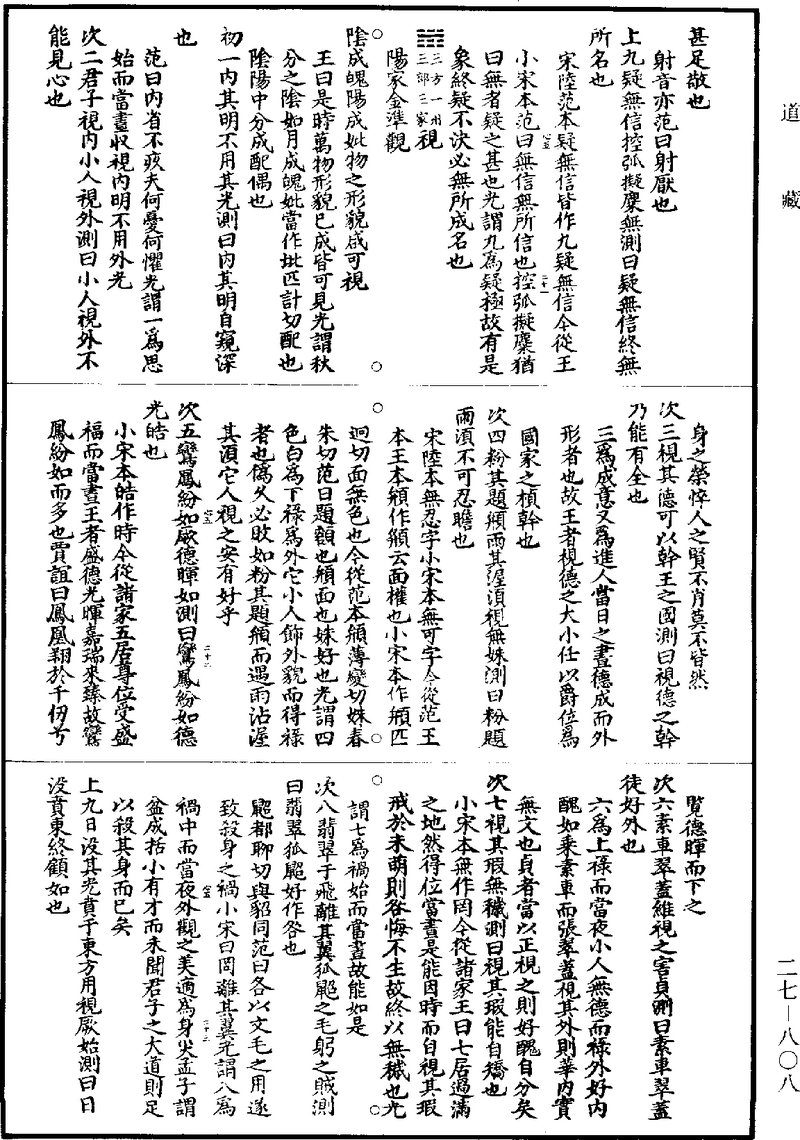 道藏
甚足敬也
射音亦范曰射厭也
上九疑無信控弧擬麋無測曰疑無信終無
所名也
宋陸范本疑無信皆作九疑無信今從王
小宋本范曰無信無所信也控弧擬麋猶
曰無者疑之甚也光謂九爲疑極故有是
象終疑不決必無所成名也
三方一州三部三家視
陽家金準觀
陰成魄陽成妣物之形貌咸可視
王曰是時萬物形貌已成皆可見光謂秋
分之陰如月成魄妣當作㚰匹計切配也
陰陽中分成配偶也
初一内其明不用其光測曰内其明自窺深
也
范曰内省不疚夫何憂何懼光謂一爲思
始而當晝收視内明不用外光
次二君子視内小人視外測曰小人視外不
能見心也
身之榮悴人之賢不肖莫不皆然
次三視其德可以幹王之國測曰視德之幹
乃能有全也
三爲成意又爲進人當日之晝德成而外
形者也故王者視德之大小仕以爵位爲
國家之楨幹也
次四粉其題頯雨其渥須視無姝測曰粉題
雨須不可忍瞻也
宋陸本無忍字小宋本無可字今從范王
本王本頯作頯云面權也小宋本作頯匹
迥切面無色也今從范本頯薄變切姝春
朱切范曰題額也頯面也姝好也光謂四
色白爲下祿爲外它小人飾外貌而得祿
者也僞久必敗如粉其題頯而遇雨沾渥
其須它人視之安有好乎
次五鸞鳳紛如厥德暉如測曰鸞鳳紛如德
光皓也
小宋本皓作時今從諸家五居尊位受盛
福而當晝王者盛德光暉嘉瑞來臻故鸞
鳳紛如而多也賈誼曰鳳凰翔於千仞兮
覽德暉而下之
次六素車翠蓋維視之害貞測曰素車翠蓋
徒好外也
六爲上祿而當夜小人無德而祿外好内
醜如乘素車而張翠蓋視其外則華内實
無文也貞者當以正視之則好醜自分矣
次七視其瑕無穢測曰視其瑕能自矯也
小宋本無作罔今從諸家王曰七居過滿
之地然得位當晝是能因時而自視其瑕
戒於未萌則咎悔不生故終以無穢也光
謂七爲禍始而當晝故能如是
次八翡翠于飛離其翼狐䶂之毛躬之賊測
曰翡翠狐䶂好作咎也
䶂都聊切與貂同范曰各以文毛之用遂
致殺身之禍小宋曰罔離其翼光謂八爲
禍中而當夜外觀之美適爲身災孟子謂
盆成括小有才而未聞君子之大道則足
以殺其身而已矣
上九日没其光賁于東方用視厥始測曰日
没賁東終顧如也
二七－八〇八